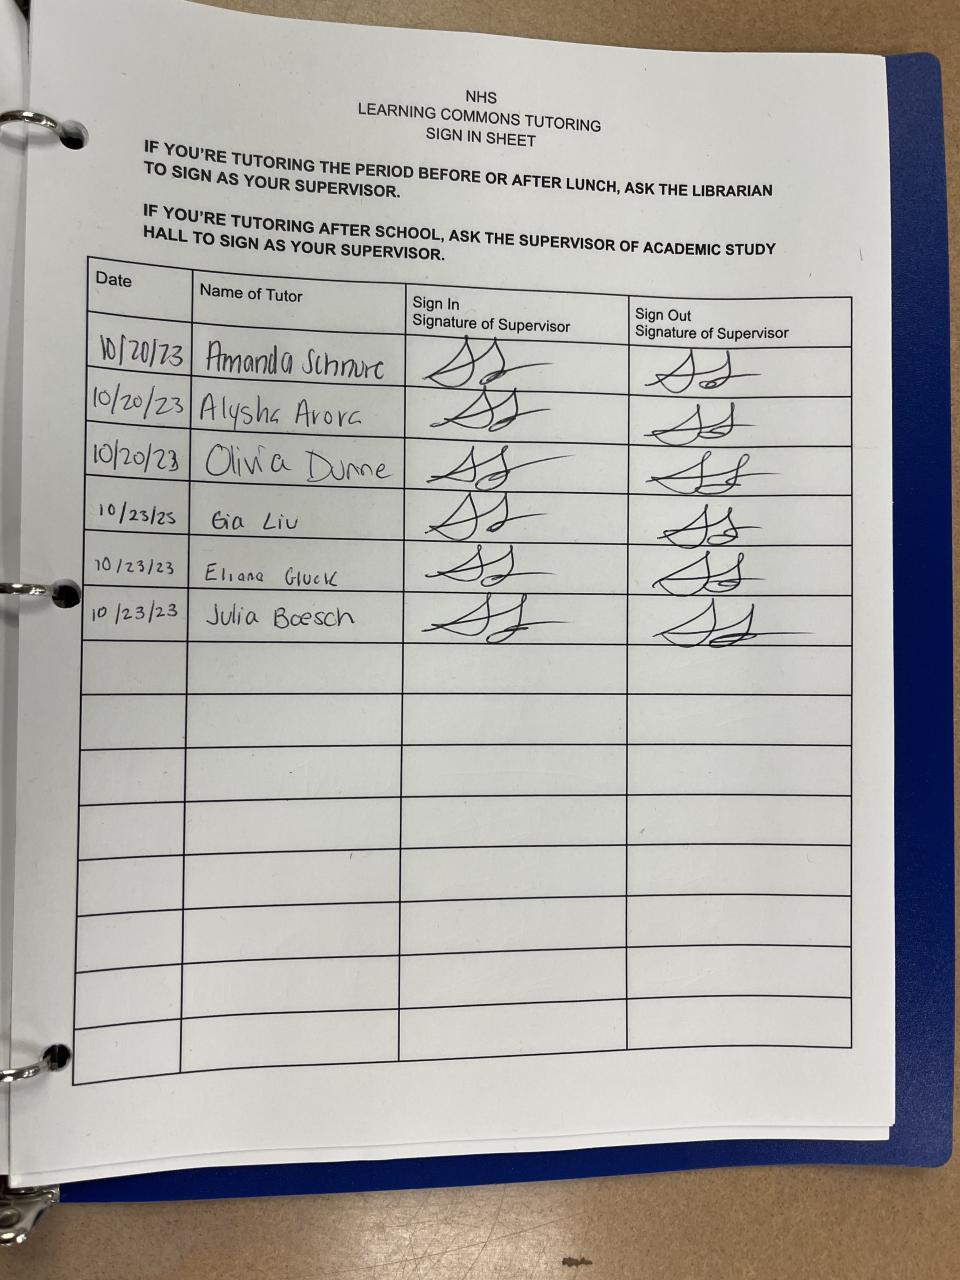 NHS
LEARNING COMMONS TUTORING
SIGN IN SHEET
IF YOU'RE TUTORING THE PERIOD BEFORE OR AFTER LUNCH, ASK THE LIBRARIAN
TO SIGN AS YOUR SUPERVISOR.
IF YOU'RE TUTORING AFTER SCHOOL, ASK THE SUPERVISOR OF ACADEMIC STUDY
HALL TO SIGN AS YOUR SUPERVISOR.
Date Name of Tutor Sign In Sign Out
Signature of Supervisor Signature of Supervisor
10/20/23 Amanda Schnurc
10/20/23 Alysha Arora
10/20/23 Olivia Dunne
10/23/23 Gia Liu
10/23/23 Eliana Gluck
10/23/23 Julia Boesch